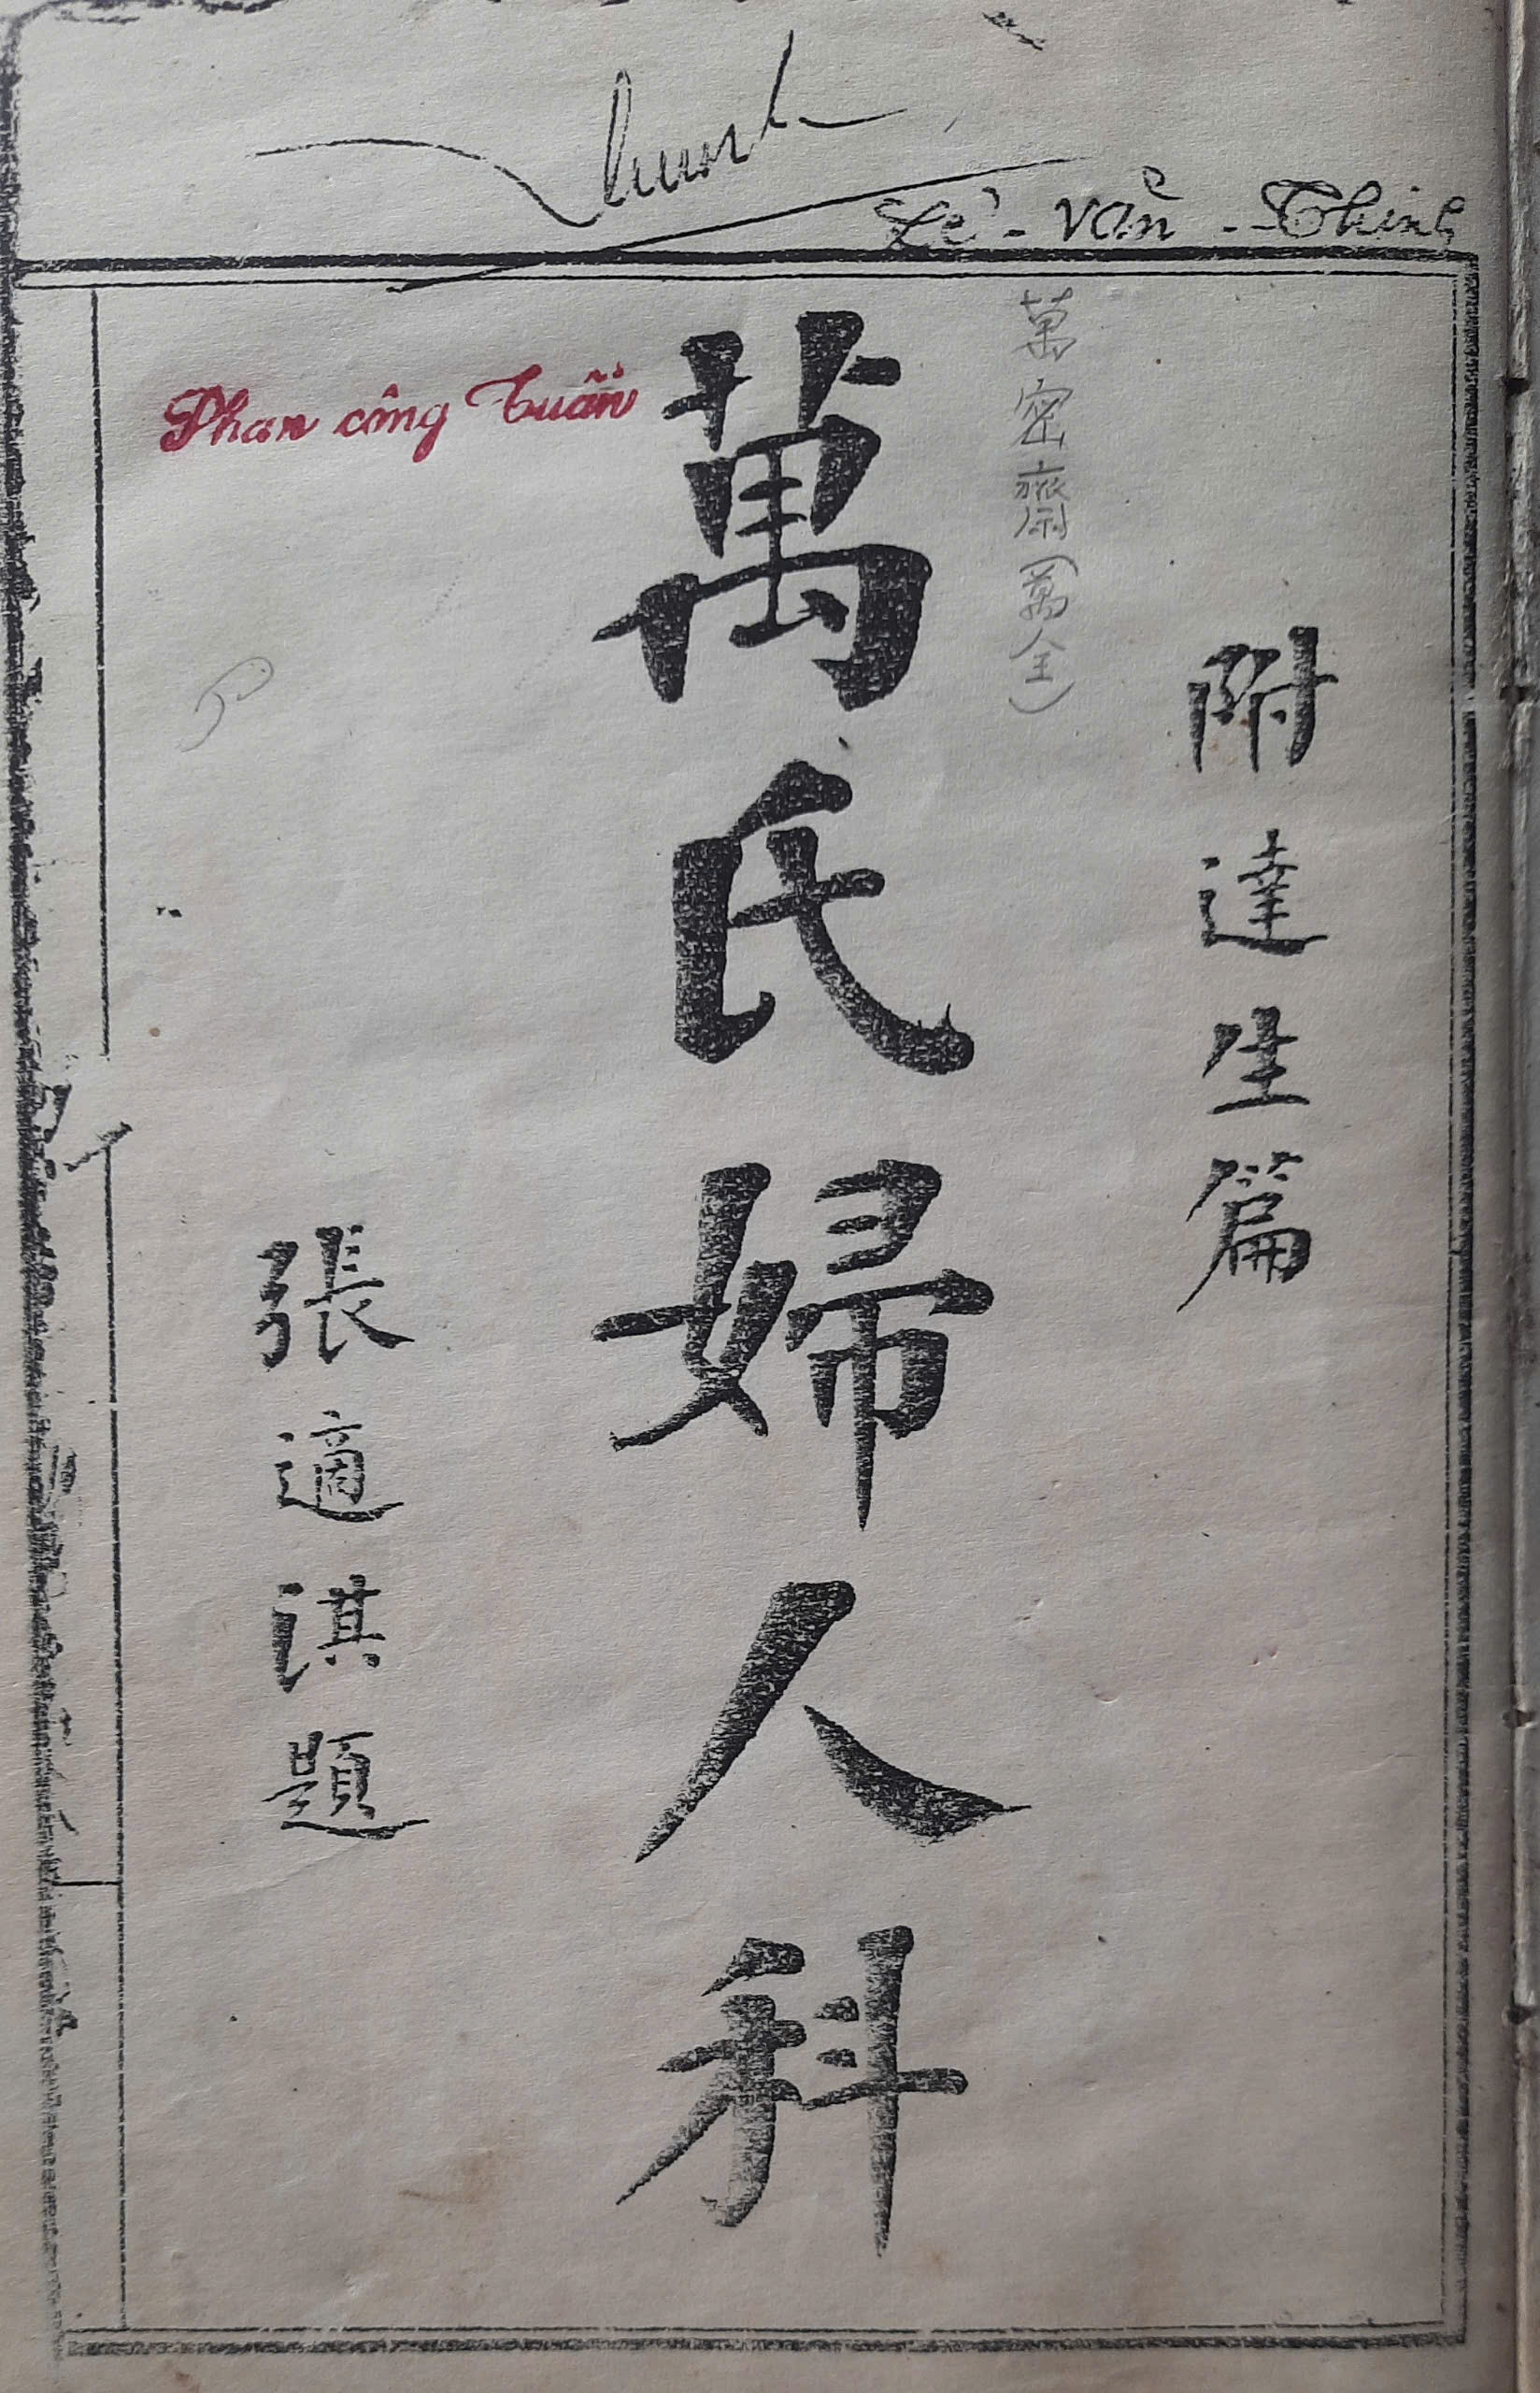 Lê - Văn - Thinh
附達生篇
萬密齋(萬全)
萬氏婦人科
Phan công Tuấn
張適淇題